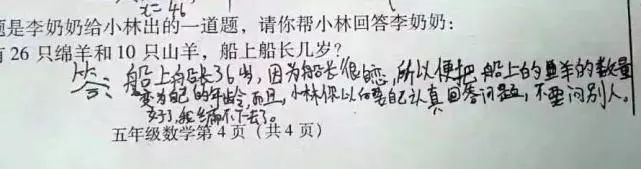 x=46
题是李奶奶给小林出的一道题，请你帮小林回答李奶奶：
有26只绵羊和10只山羊，船上船长几岁？
答：船上船长36岁，因为船长很自恋，所以便把船上的羊的数量
变为自己的年龄，而且，小林你以后要自己认真回答问题，不要问别人。
好了，我编不下去了。
五年级数学第4页（共4页）